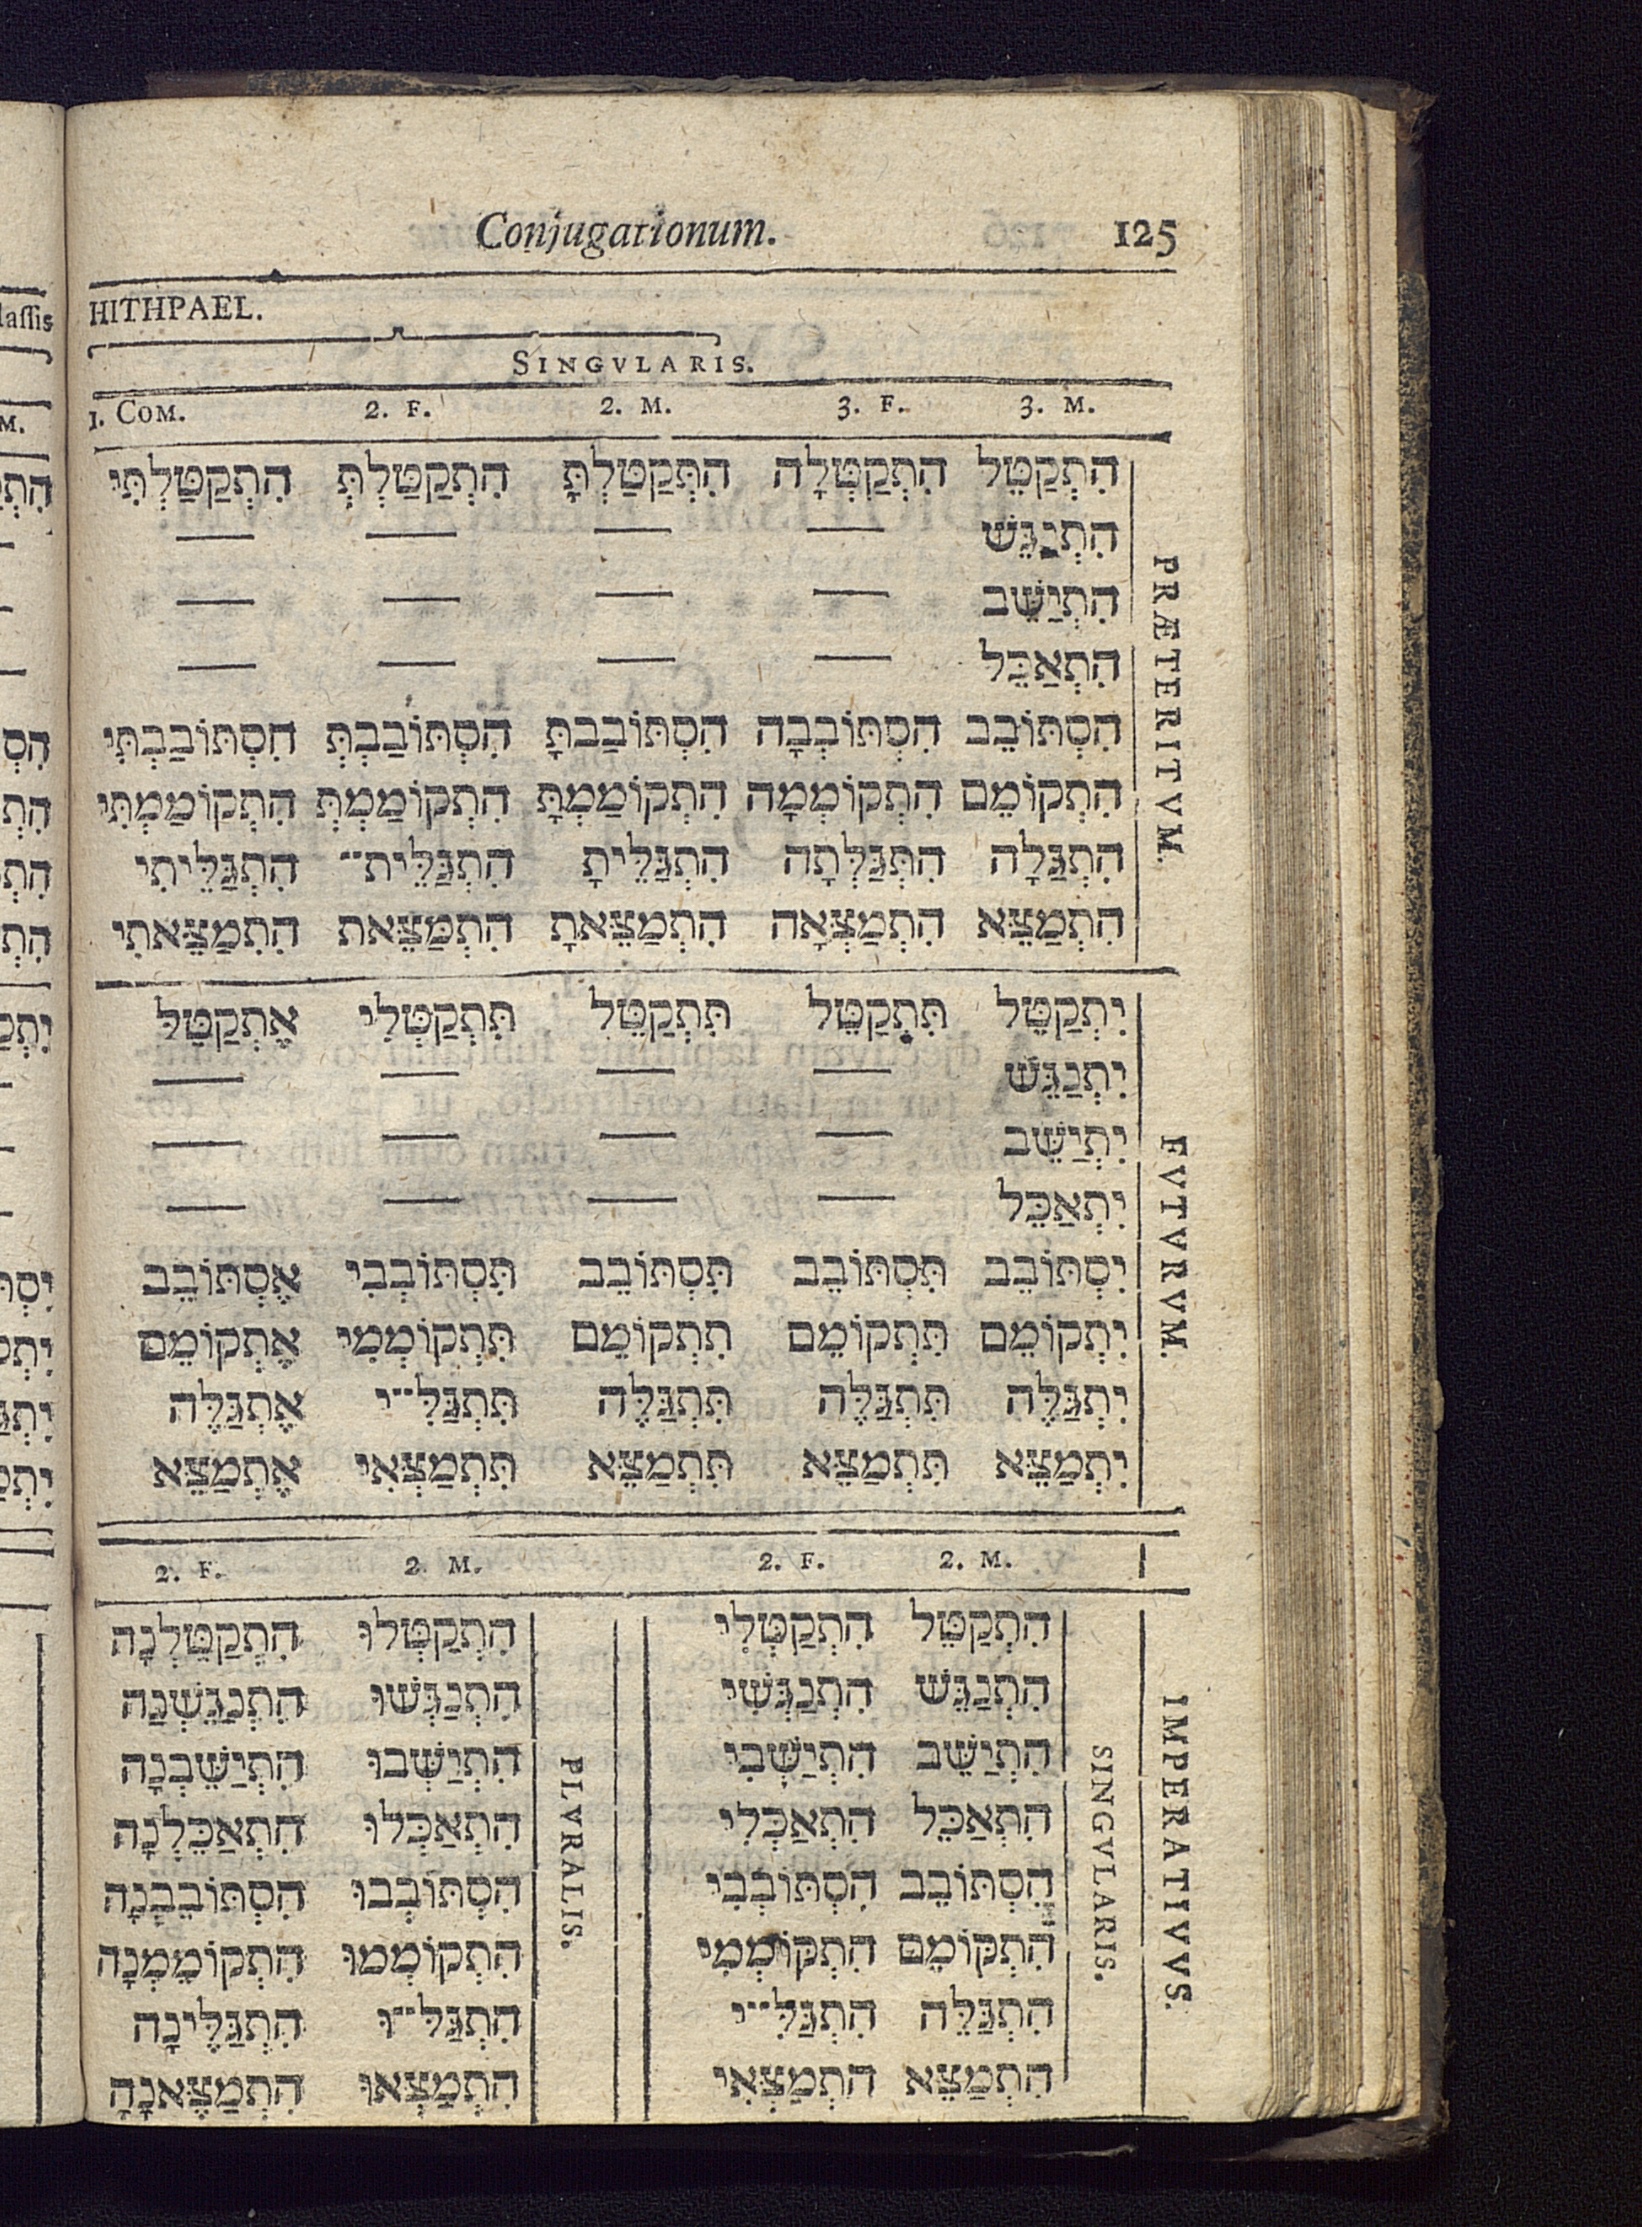 Conjugationum. 125
HITHPAEL.
SINGVLARIS.
1. COM. 2. F. 2. M. 3. F. 3. M.
PRÆTERITVM.
הִתְקַטֵּל הִתְקַטְּלָה הִתְּקַטַּלְתָּ הִתְקַטַּלְתְּ הִתְקַטַּלְתִּי
הִתְנַגֵּשׁ — — — —
הִתְיַשֵּׁב — — — —
הִתְאַכֵּל — — — —
הִסְתּוֹבֵב הִסְתּוֹבְבָה הִסְתּוֹבַבתָּ הִסְתּוֹבַבְתְּ הִסְתּוֹבַבְתִּי
הִתְקוֹמֵם הִתְקוֹמְמָה הִתְקוֹמַמְתָּ הִתְקוֹמַמְתְּ הִתְקוֹמַמְתִּי
הִתְגַּלָּה הִתְּגַּלְּתָה הִתְגַּלֵּיתָ הִתְגַּלֵּית־ הִתְגַּלֵּיתִי
הִתְמַצֵּא הִתְמַצְּאָה הִתְמַצֵּאתָ הִתְמַּצֵּאת הִתְמַצֵּאתִי
FVTVRVM.
יִתְקַטֵּל תִּתְקַטֵּל תִּתְקַטֵּל תִּתְקַטְּלִי אֶתְקַטֵּל
יִתְנַגֵּשׁ — — — —
יִתְיַשֵּׁב — — — —
יִתְאַכֵּל — — — —
יִסְתּוֹבֵב תִּסְתּוֹבֵב תִּסְתּוֹבֵב תִּסְתּוֹבְבִי אֶסְתּוֹבֵב
יִתְקוֹמֵם תִּתְקוֹמֵם תִתְקוֹמֵם תִּתְקוֹמְמִי אֶתְקוֹמֵם
יִתְגַּלֶּה תִּתְגַּלֶּה תִּתְגַּלֶּה תִּתְגַּלִּ־י אֶתְגַּלֶּה
יִתְמַצֵּא תִּתְמַצֵּא תִּתְמַצֵּא תִּתְמַצְּאִי אֶתְמַצֵּא
2. F. 2 M. 2. F. 2. M.
IMPERATIVVS.
SINGVLARIS.
PLVRALIS.
הִתְקַטֵּל הִתְקַטְּלִי הִתְקַטְּלוּ הִתְקַטֵּלְנָה
הִתְנַגֵּשׁ הִתְנַגְּשִׁי הִתְנַגְּשׁוּ הִתְנַגֵּשְׁנָה
הִתְיַשֵּׁב הִתְיַשְּׁבִי הִתְיַשְּׁבוּ הִתְיַשֵּׁבְנָה
הִתְאַכֵּל הִתְאַכְּלִי הִתְאַכְּלוּ הִתְאַכֵּלְנָה
הִסְתּוֹבֵב הִסְתּוֹבְבִי הִסְתּוֹבְבוּ הִסְתּוֹבֵבְנָה
הִתְקוֹמֵם הִתְקוֹמְמִי הִתְקוֹמְמוּ הִתְקוֹמֵמְנָה
הִתְגַּלֵּה הִתְגַּלִּ־י הִתְגַּלּ־וּ הִתְגַּלֶּינָה
הִתְמַצֵּא הִתְמַצְּאִי הִתְמַצְּאוּ הִתְמַצֶּאנָה